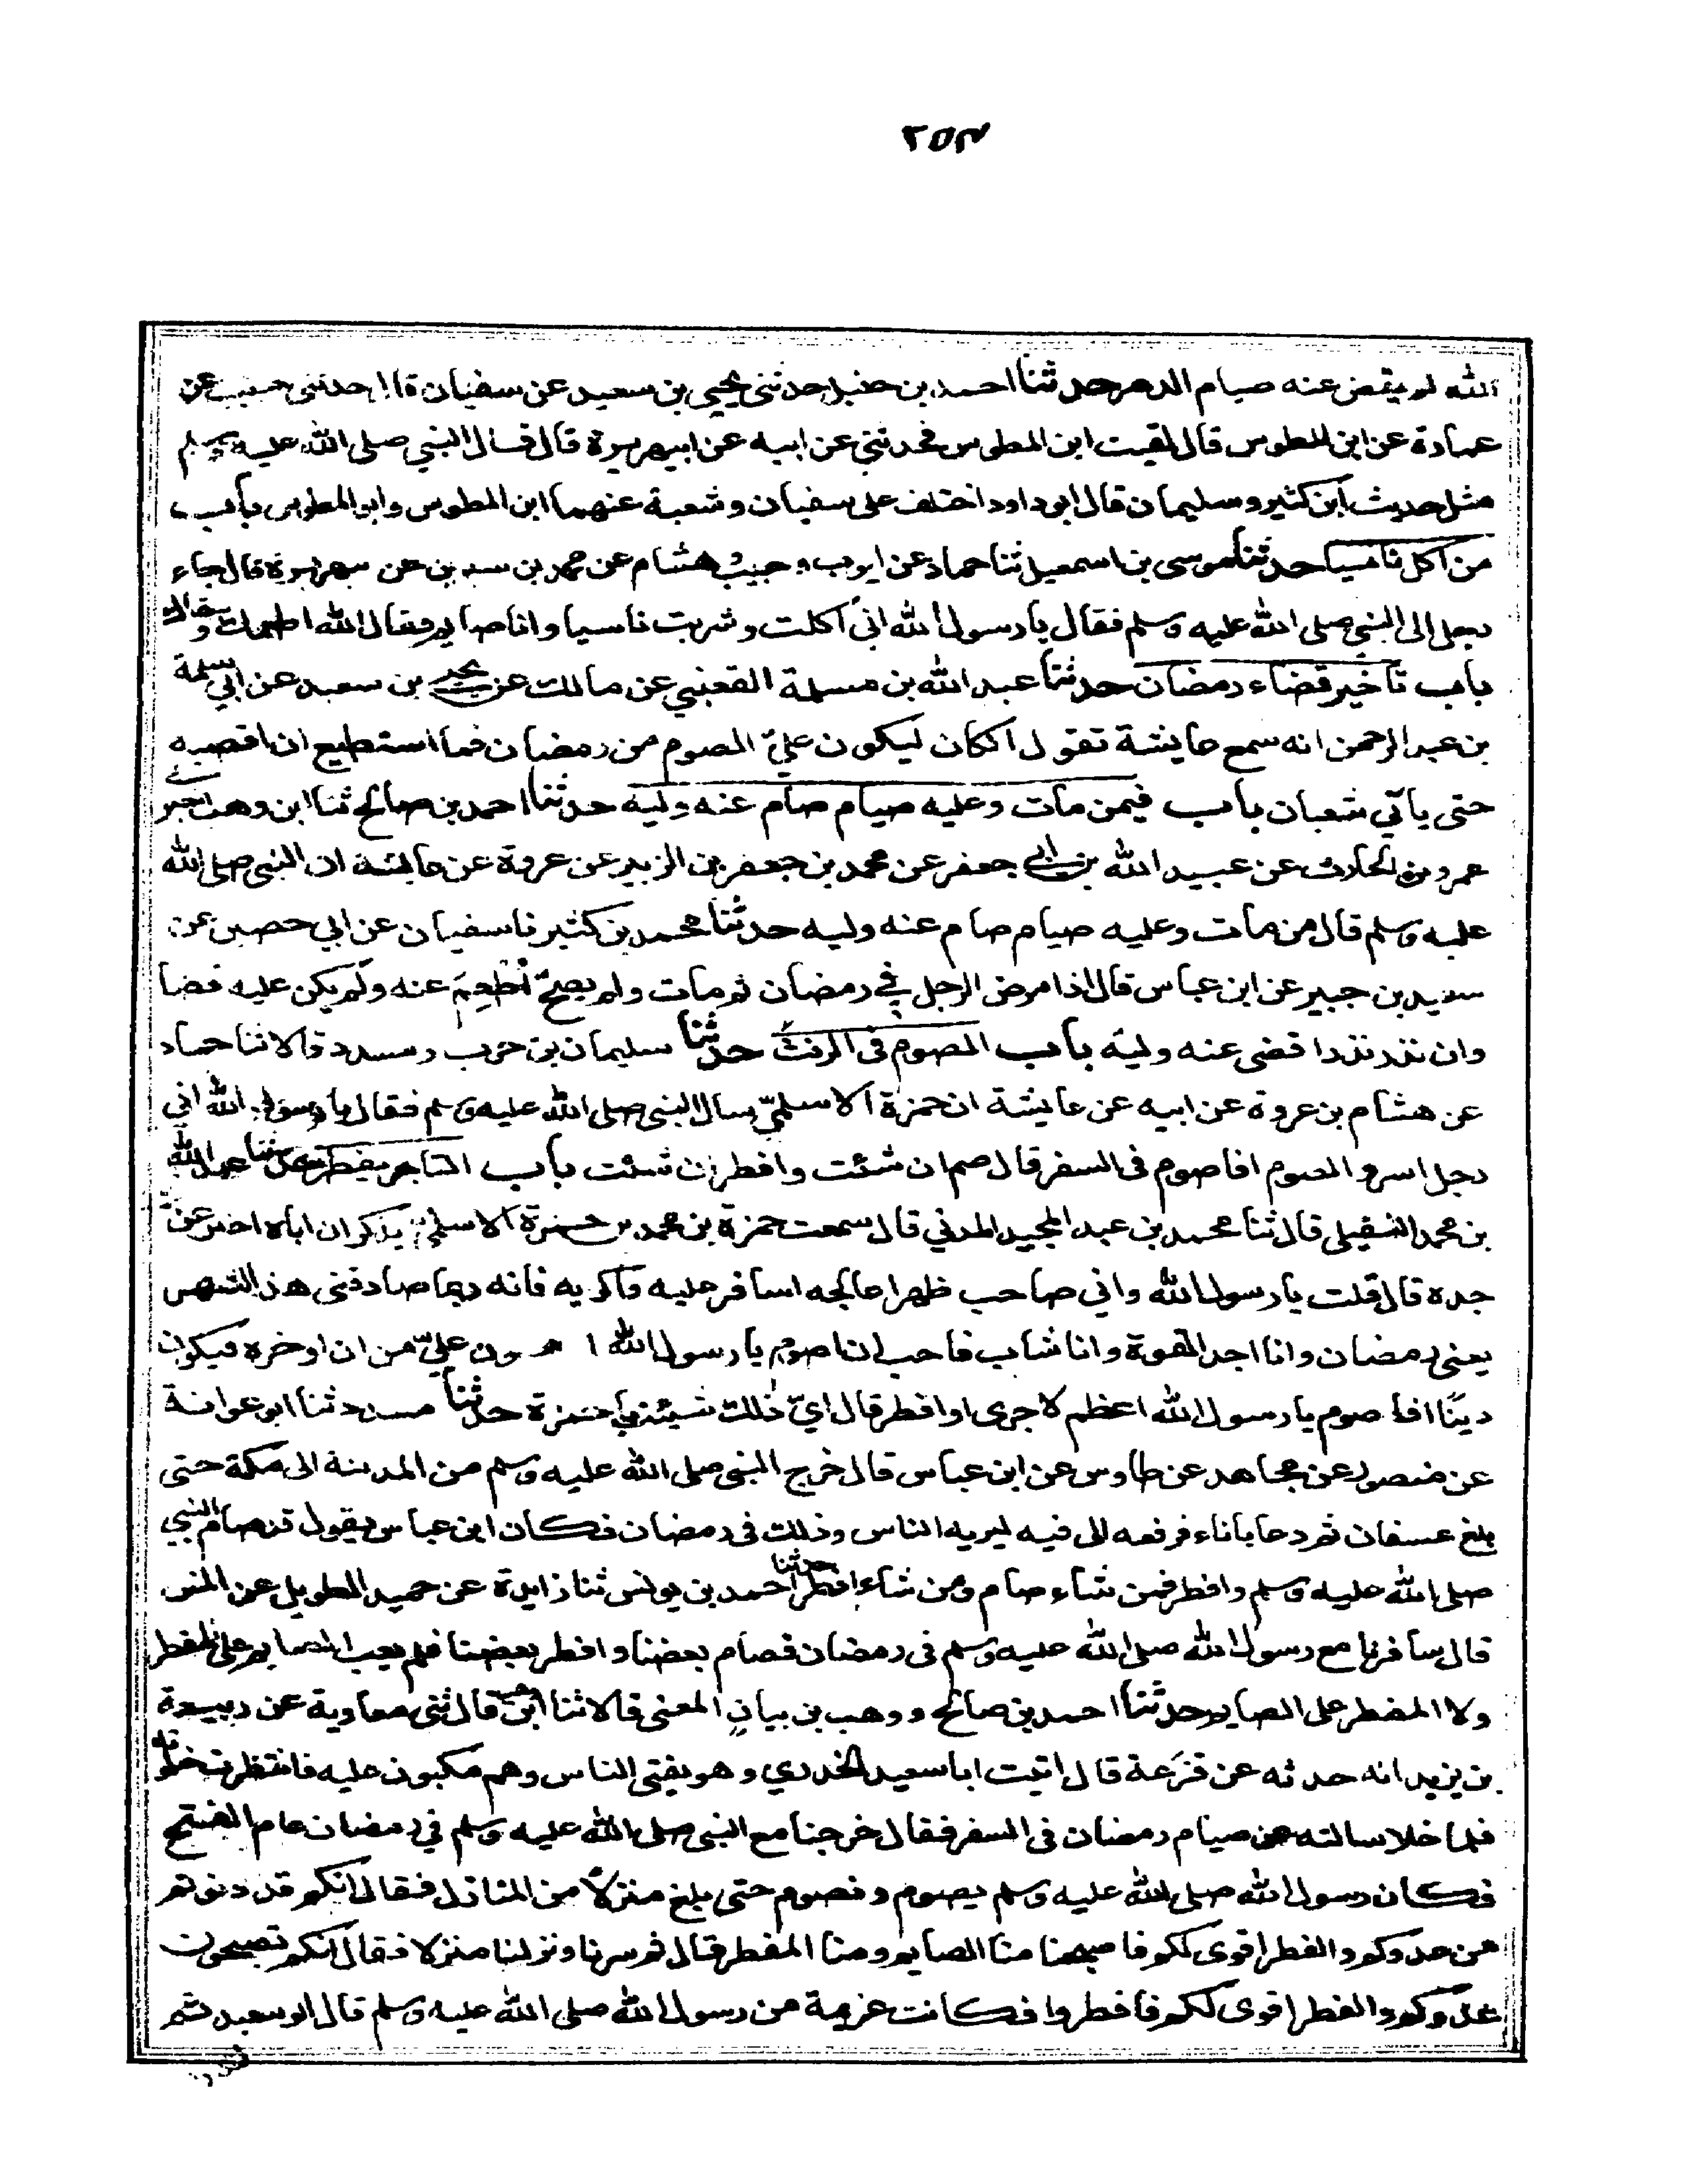 ٢٥٣
الله لم يقض عنه صيام الدهر حدثنا احمد بن حنبل حدثنى يحيى بن سعيد عن سفيان قال حدثنى حبيب عن
عمارة عن ابن المطوس قال لقيت ابن المطوس فحدثنى عن ابيه عن ابيهريرة قال قال النبي صلى الله عليه وسلم
مثل حديث ابن كثير وسليمان قال ابو داود اختلف على سفيان وشعبة عنهما ابن المطوس وابو المطوس باب
من اكل ناسيا حدثنا موسى بن اسمعيل ثنا حماد عن ايوب وحبيب وهشام عن محمد بن سيرين عن بيهريرة قال جاء
رجل الى النبي صلى الله عليه وسلم فقال يا رسول الله اني اكلت وشربت ناسيا وانا صايم فقال الله اطعمك وسقاك
باب تاخير قضاء رمضان حدثنا عبد الله بن مسلمة القعنبي عن مالك عن يحيى بن سعيد عن ابي سلمة
بن عبد الرحمن انه سمع عايشة تقول ان كان ليكون عليّ الصوم من رمضان فما استطيع ان اقضيه
حتى ياتي شعبان باب فيمن مات وعليه صيام صام عنه وليه حدثنا احمد بن صالح ثنا ابن وهب اخبرني
عمرو بن الحارث عن عبيد الله بن ابي جعفر عن محمد بن جعفر بن الزبير عن عروة عن عايشة ان النبي صلى الله
عليه وسلم قال من مات وعليه صيام صام عنه وليه حدثنا محمد بن كثير نا سفيان عن ابي حصين عن
سعيد بن جبير عن ابن عباس قال اذا مرض الرجل في رمضان ثم مات ولم يصحّ أُطعِمَ عنه ولم يكن عليه قضا
وان نذر نذرا قضى عنه وليه باب الصوم في السفر حدثنا سليمان بن حرب ومسدد قالا ثنا حماد
عن هشام بن عروة عن ابيه عن عايشة ان حمزة الاسلميّ سال النبي صلى الله عليه وسلم فقال يا رسول الله اني
رجل اسرد الصوم افاصوم فى السفر قال صم ان شئت وافطر ان شئت باب التاجر يفطر حدثنا عبد الله
بن محمد النفيلى قال ثنا محمد بن عبد المجيد المدني قال سمعت حمزة بن محمد بن حمزة الاسلمي يذكر ان اباه اخبره عن
جده قال قلت يا رسول الله واني صاحب ظهر اعالجه اسافر عليه واكريه فانه ربما صادفنى هذا الشهر
يعنى رمضان وانا اجد القوة وانا شاب فاحب ان اصوم يا رسول الله اهون عليّ من ان اوخره فيكون
دينًا افاصوم يا رسول الله اعظم لاجرى او افطر قال ايّ ذلك شئت يا حمزة حدثنا مسدد ثنا ابو عوانة
عن منصور عن مجاهد عن طاوس عن ابن عباس قال خرج النبي صلى الله عليه وسلم من المدينة الى مكة حتى
بلغ عسفان ثم دعا باناء فرفعه الى فيه ليريه الناس وذلك فى رمضان فكان ابن عباس يقول قد صام النبي
صلى الله عليه وسلم وافطر فمن شاء صام ومن شاء افطر حدثنا احمد بن يونس ثنا زايدة عن حميد الطويل عن انس
قال سافرنا مع رسول الله صلى الله عليه وسلم فى رمضان فصام بعضنا وافطر بعضنا فلم يعب الصايم على المفطر
ولا المفطر على الصايم حدثنا احمد بن صالح ووهب بن بيان المعنى قالا ثنا ابن وهب قال ثنى معاوية عن ربيعة
بن يزيد انه حدثه عن قزعة قال اتيت ابا سعيد الخدري وهو يفتى الناس وهم مكبون عليه فانتظرت خلوته
فلما خلا سالته عن صيام رمضان فى السفر فقال خرجنا مع النبي صلى الله عليه وسلم في رمضان عام الفتح
فكان رسول الله صلى الله عليه وسلم يصوم ونصوم حتى بلغ منزلاً من المنازل فقال انكم قد دنوتم
من عدوكم والفطر اقوى لكم فاصبحنا منا الصايم ومنا المفطر قال ثم سرنا ونزلنا منزلا فقال انكم تصبحون
عدوكم والفطر اقوى لكم فافطروا فكانت عزيمة من رسول الله صلى الله عليه وسلم قال ابو سعيد ثم